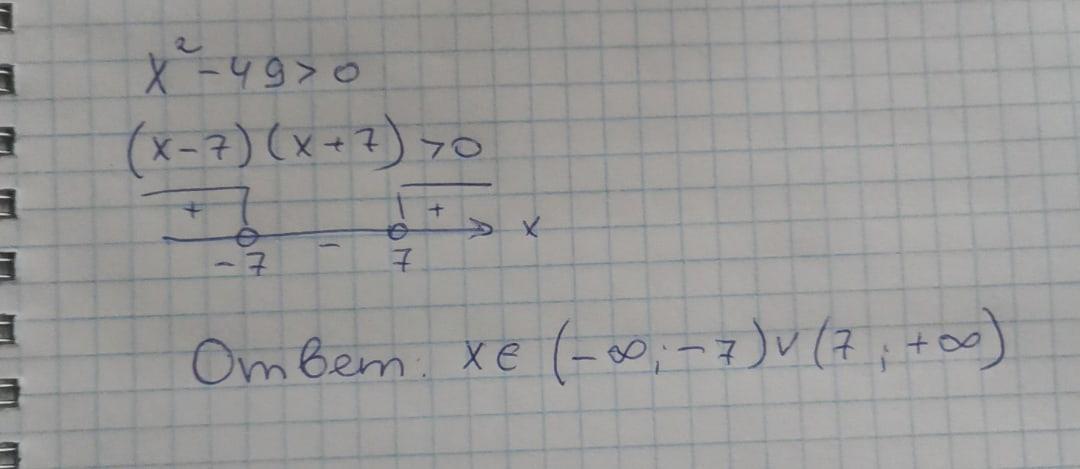 x² - 49 > 0
(x - 7)(x + 7) > 0
+ - + x
-7 7
Ответ: x ∈ (-∞; -7) ∪ (7; +∞)